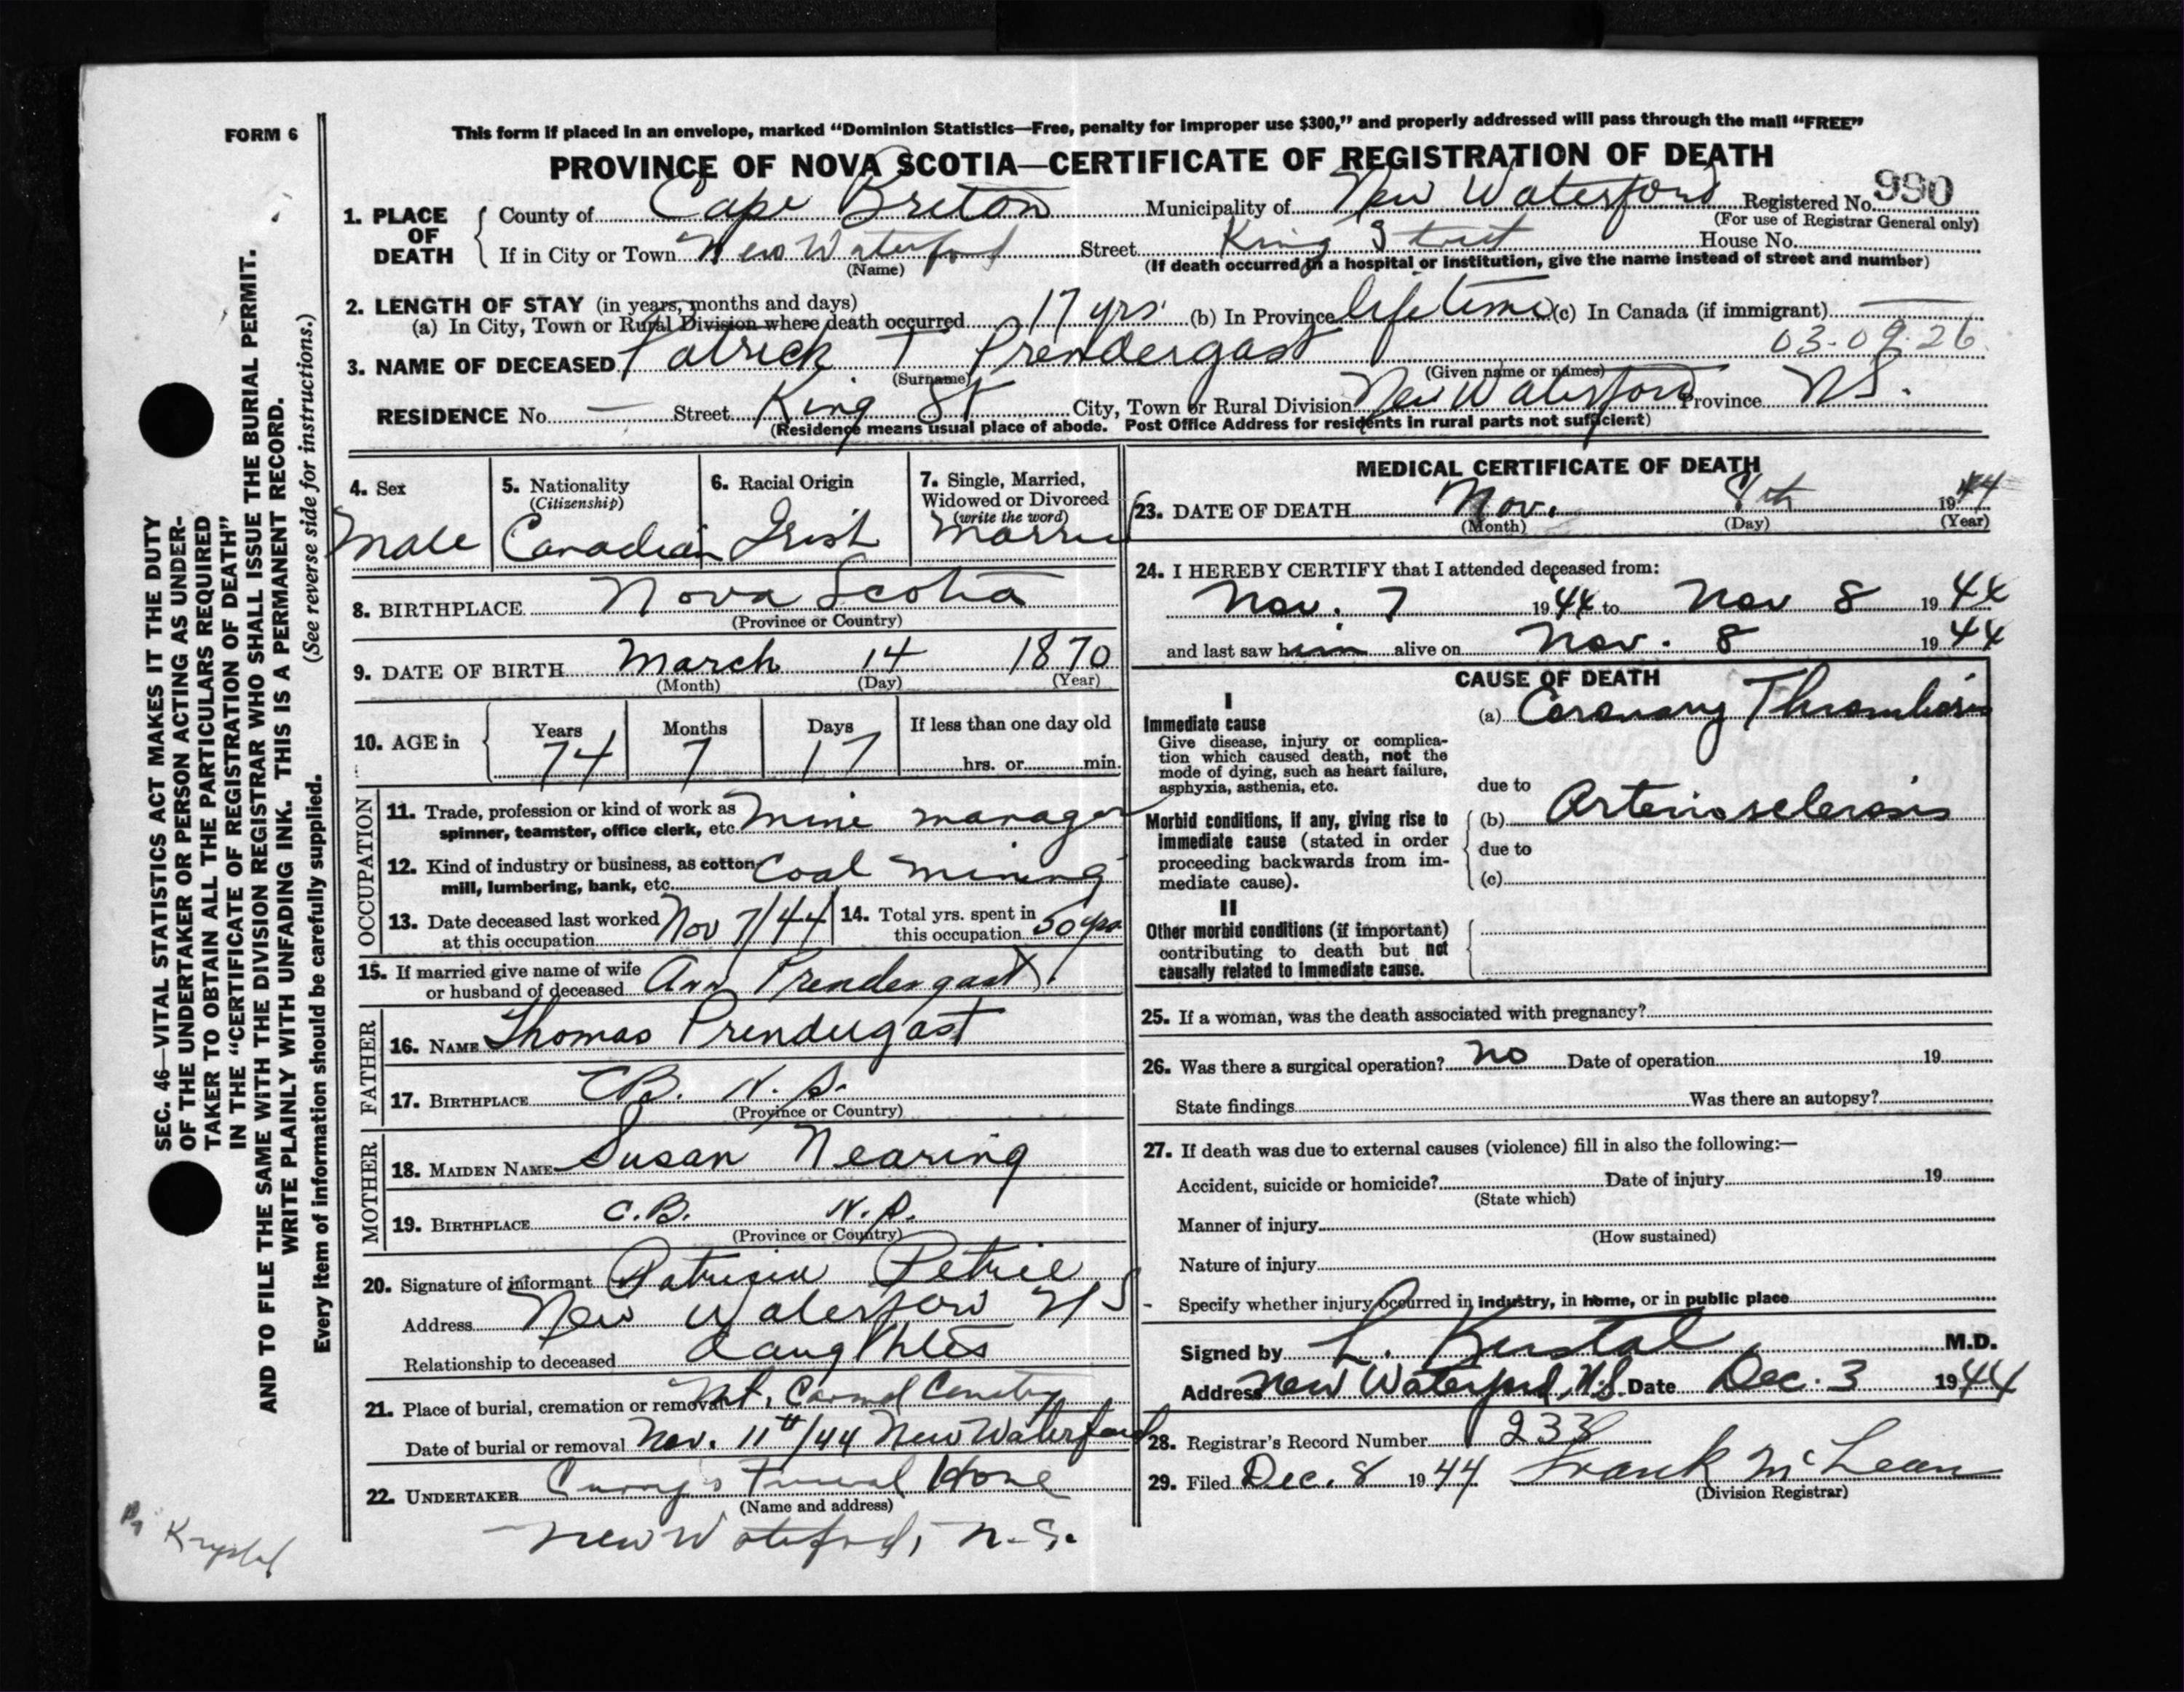 FORM 6
This form if placed in an envelope, marked “Dominion Statistics—Free, penalty for improper use $300,” and properly addressed will pass through the mail “FREE”
PROVINCE OF NOVA SCOTIA—CERTIFICATE OF REGISTRATION OF DEATH
1. PLACE OF DEATH County of Cape Breton Municipality of New Waterford Registered No. 990
(For use of Registrar General only)
If in City or Town New Waterford Street King Street House No.
(Name) (If death occurred in a hospital or institution, give the name instead of street and number)
2. LENGTH OF STAY (in years, months and days)
(a) In City, Town or Rural Division where death occurred 17 yrs. (b) In Province lifetime (c) In Canada (if immigrant) —
03-09-26
3. NAME OF DECEASED Patrick T Prendergast
(Surname) (Given name or names)
RESIDENCE No. — Street King St City, Town or Rural Division New Waterford Province N.S.
(Residence means usual place of abode. Post Office Address for residents in rural parts not sufficient)
4. Sex Male
5. Nationality (Citizenship) Canadian
6. Racial Origin Irish
7. Single, Married, Widowed or Divorced (write the word) Married
8. BIRTHPLACE Nova Scotia
(Province or Country)
9. DATE OF BIRTH March 14 1870
(Month) (Day) (Year)
10. AGE in Years 74 Months 7 Days 17 If less than one day old
hrs. or min.
OCCUPATION
11. Trade, profession or kind of work as
spinner, teamster, office clerk, etc. mine manager
12. Kind of industry or business, as cotton
mill, lumbering, bank, etc. Coal mining
13. Date deceased last worked
at this occupation Nov 7/44
14. Total yrs. spent in
this occupation 50 yrs.
15. If married give name of wife
or husband of deceased Ann Prendergast.
FATHER
16. NAME Thomas Prendergast
17. BIRTHPLACE C.B. N.S.
(Province or Country)
MOTHER
18. MAIDEN NAME Susan Nearing
19. BIRTHPLACE C.B. N.S.
(Province or Country)
20. Signature of informant Patricia Petrie
Address New Waterford N S
Relationship to deceased
21. Place of burial, cremation or removal Mt. Carmel Cemetery
Date of burial or removal Nov. 11th/44 New Waterford
22. UNDERTAKER Curry's Funeral Home
(Name and address)
New Waterford, N.S.
MEDICAL CERTIFICATE OF DEATH
23. DATE OF DEATH Nov. 8th 1944
(Month) (Day) (Year)
24. I HEREBY CERTIFY that I attended deceased from:
Nov. 7 1944 to Nov 8 1944
and last saw him alive on Nov. 8 1944
CAUSE OF DEATH
I
Immediate cause
Give disease, injury or complica-
tion which caused death, not the
mode of dying, such as heart failure,
asphyxia, asthenia, etc.
(a) Coronary Thrombosis
due to
Morbid conditions, if any, giving rise to
immediate cause (stated in order
proceeding backwards from im-
mediate cause).
(b) Arteriosclerosis
due to
(c)
II
Other morbid conditions (if important)
contributing to death but not
causally related to immediate cause.
25. If a woman, was the death associated with pregnancy?
26. Was there a surgical operation? no Date of operation 19
State findings Was there an autopsy?
27. If death was due to external causes (violence) fill in also the following:—
Accident, suicide or homicide? Date of injury 19
(State which)
Manner of injury
(How sustained)
Nature of injury
Specify whether injury occurred in industry, in home, or in public place
Signed by L. M.D.
Address New Waterford, N.S. Date Dec. 3 1944
28. Registrar's Record Number 233
29. Filed Dec. 8 1944 Frank McLean
(Division Registrar)
SEC. 46—VITAL STATISTICS ACT MAKES IT THE DUTY
OF THE UNDERTAKER OR PERSON ACTING AS UNDER-
TAKER TO OBTAIN ALL THE PARTICULARS REQUIRED
IN THE “CERTIFICATE OF REGISTRATION OF DEATH”
AND TO FILE THE SAME WITH THE DIVISION REGISTRAR WHO SHALL ISSUE THE BURIAL PERMIT.
WRITE PLAINLY WITH UNFADING INK. THIS IS A PERMANENT RECORD.
Every item of information should be carefully supplied. (See reverse side for instructions.)